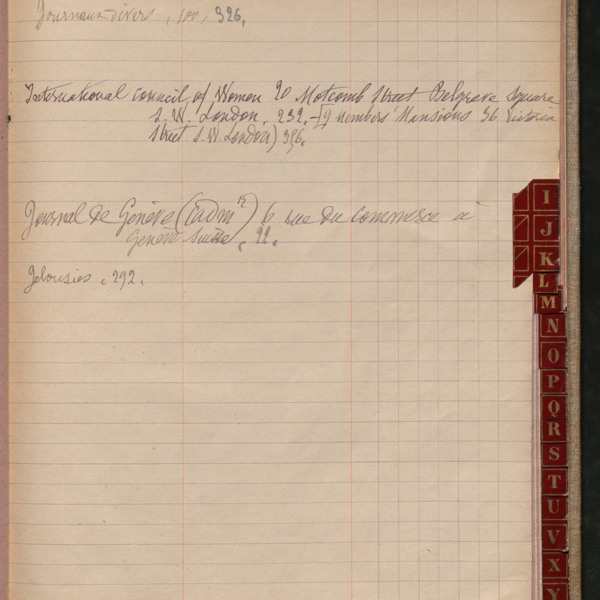 Journaux divers, 100, 326.
International council of Women 20 Motcomb Street Belgrave Square
S. W. London, 232.-[9 Members' Mansions 36 Victoria
Street S. W London) 396.
Journal de Genève (adm^on) 6 rue du Commerce à
Genève Suisse, 92.
Jalousies, 292.
I
J
K
L
M
N
O
P
Q
R
S
T
U
V
X
Y